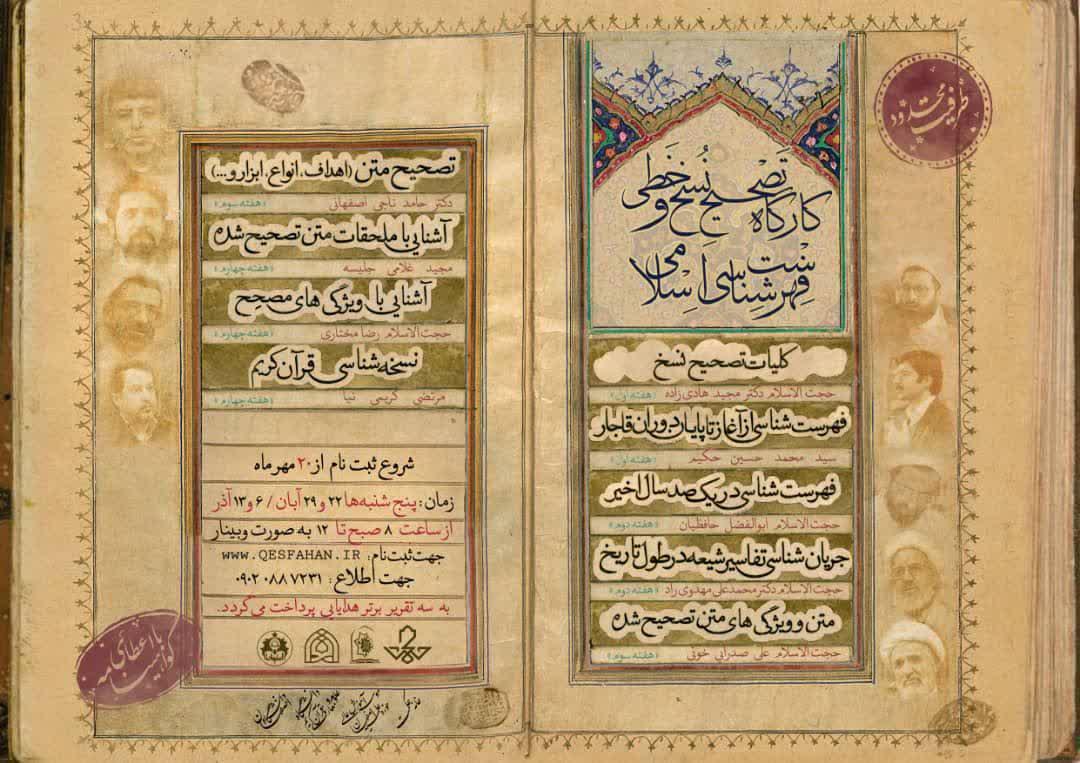 کارگاه تصحیح نسخ خطی و
فهرست شناسی اسلامی
ظرفیت محدود
کلیات تصحیح نسخ
حجت الاسلام دکتر مجید هادی زاده «هفته اول»
فهرست شناسی از آغاز تا پایان دوران قاجار
سید محمد حسین حکیم «هفته اول»
فهرست شناسی در یک صد سال اخیر
حجت الاسلام ابوالفضل حافظیان «هفته دوم»
جریان شناسی تفاسیر شیعه در طول تاریخ
حجت الاسلام دکتر محمد علی مهدوی راد «هفته دوم»
متن و ویژگی های متن تصحیح شده
حجت الاسلام علی صدرائی خوئی «هفته سوم»
تصحیح متن (اهداف، انواع، ابزار و...)
دکتر حامد ناجی اصفهانی «هفته سوم»
آشنایی با ملحقات متن تصحیح شده
مجید غلامی جلیسه «هفته چهارم»
آشنایی با ویژگی های مصحح
حجت الاسلام رضا مختاری «هفته چهارم»
نسخه شناسی قرآن کریم
مرتضی کریمی نیا «هفته چهارم»
شروع ثبت نام از ۲۰ مهر ماه
زمان: پنج شنبه‌ها ۲۲ و ۲۹ آبان / ۶ و ۱۳ آذر
از ساعت ۸ صبح تا ۱۲ به صورت وبینار
جهت ثبت نام: WWW.QESFAHAN.IR
جهت اطلاع: ۰۹۰۲۰۸۸۷۲۳۱
به سه تقریر برتر هدایایی پرداخت می گردد.
با اعطای گواهینامه